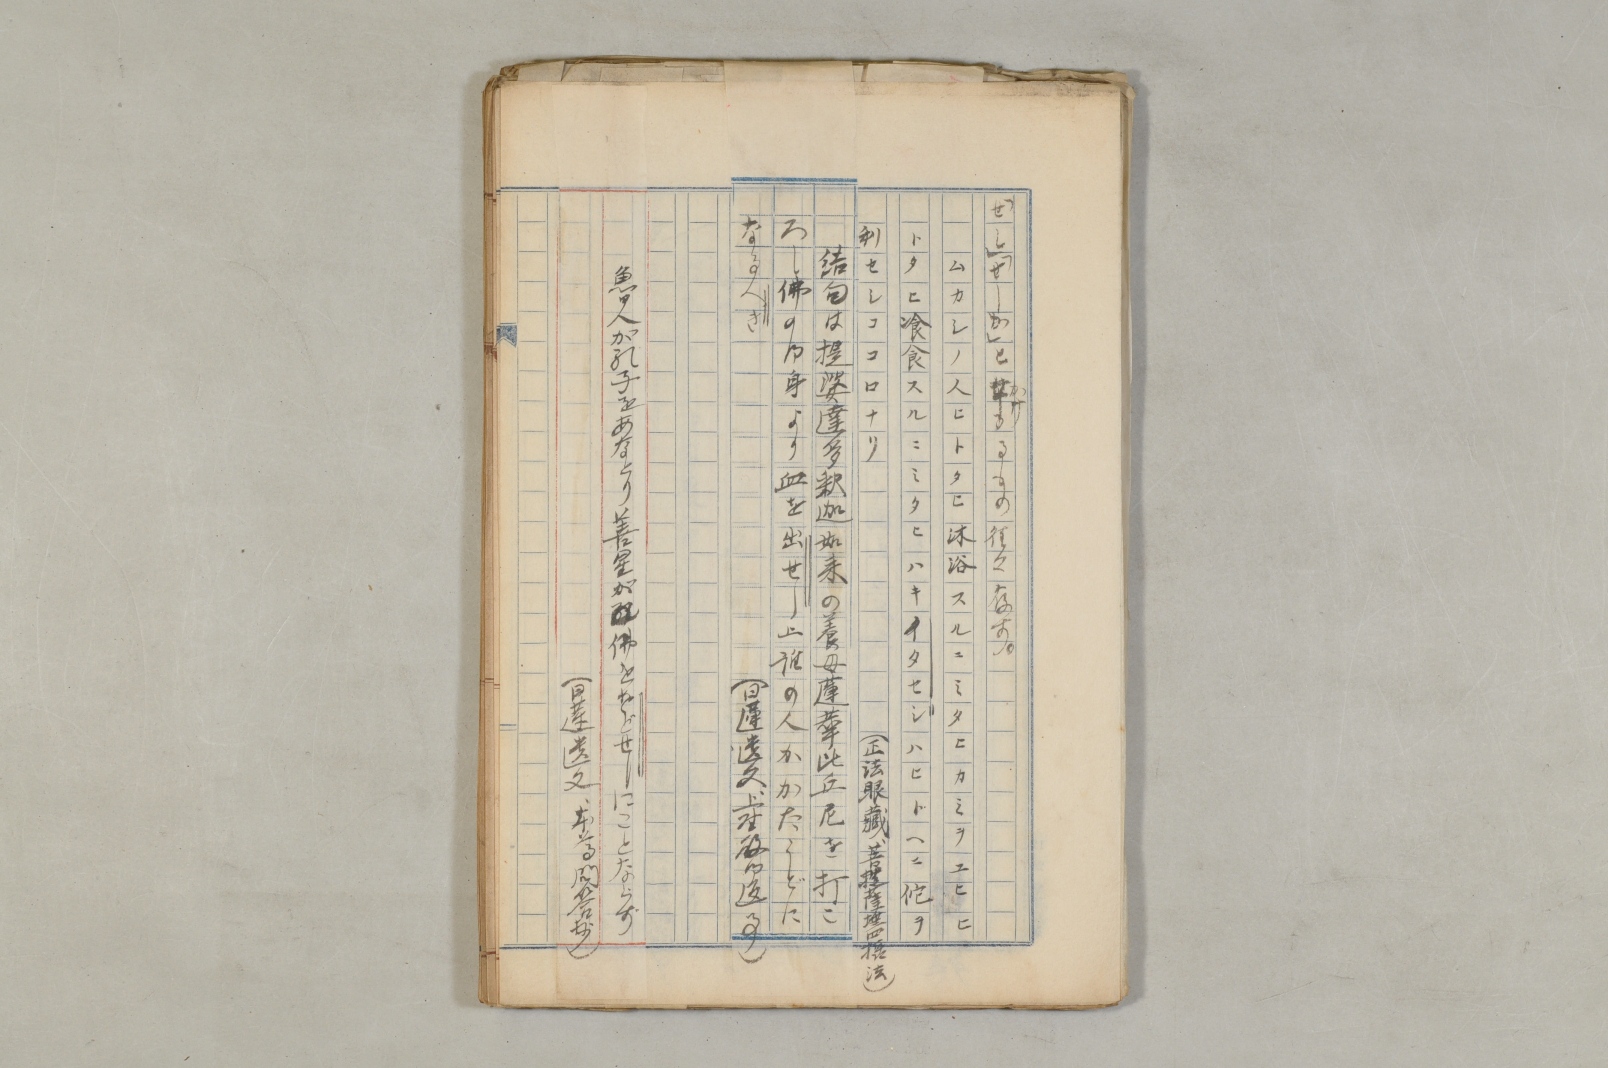 せし」「せしか」と かけるもの往々存す。
ムカシノ人ヒトタヒ沐浴スルニミタヒカミヲユヒヒ
トタヒ飡食スルニミタヒハキイタセシハヒトヘニ佗ヲ
利セシココロナリ
(正法眼藏、菩提薩埵四摂法)
結句は提婆達多釈迦如来の養母蓮華比丘尼を打こ
ろし佛の御身より血を出せし上誰の人かかたうどに
なるべき
(日蓮遺文、上野殿御返事)
魯人が孔子をあなづり善星が佛をおどせしにことならず
(日蓮遺文、本尊問答抄)